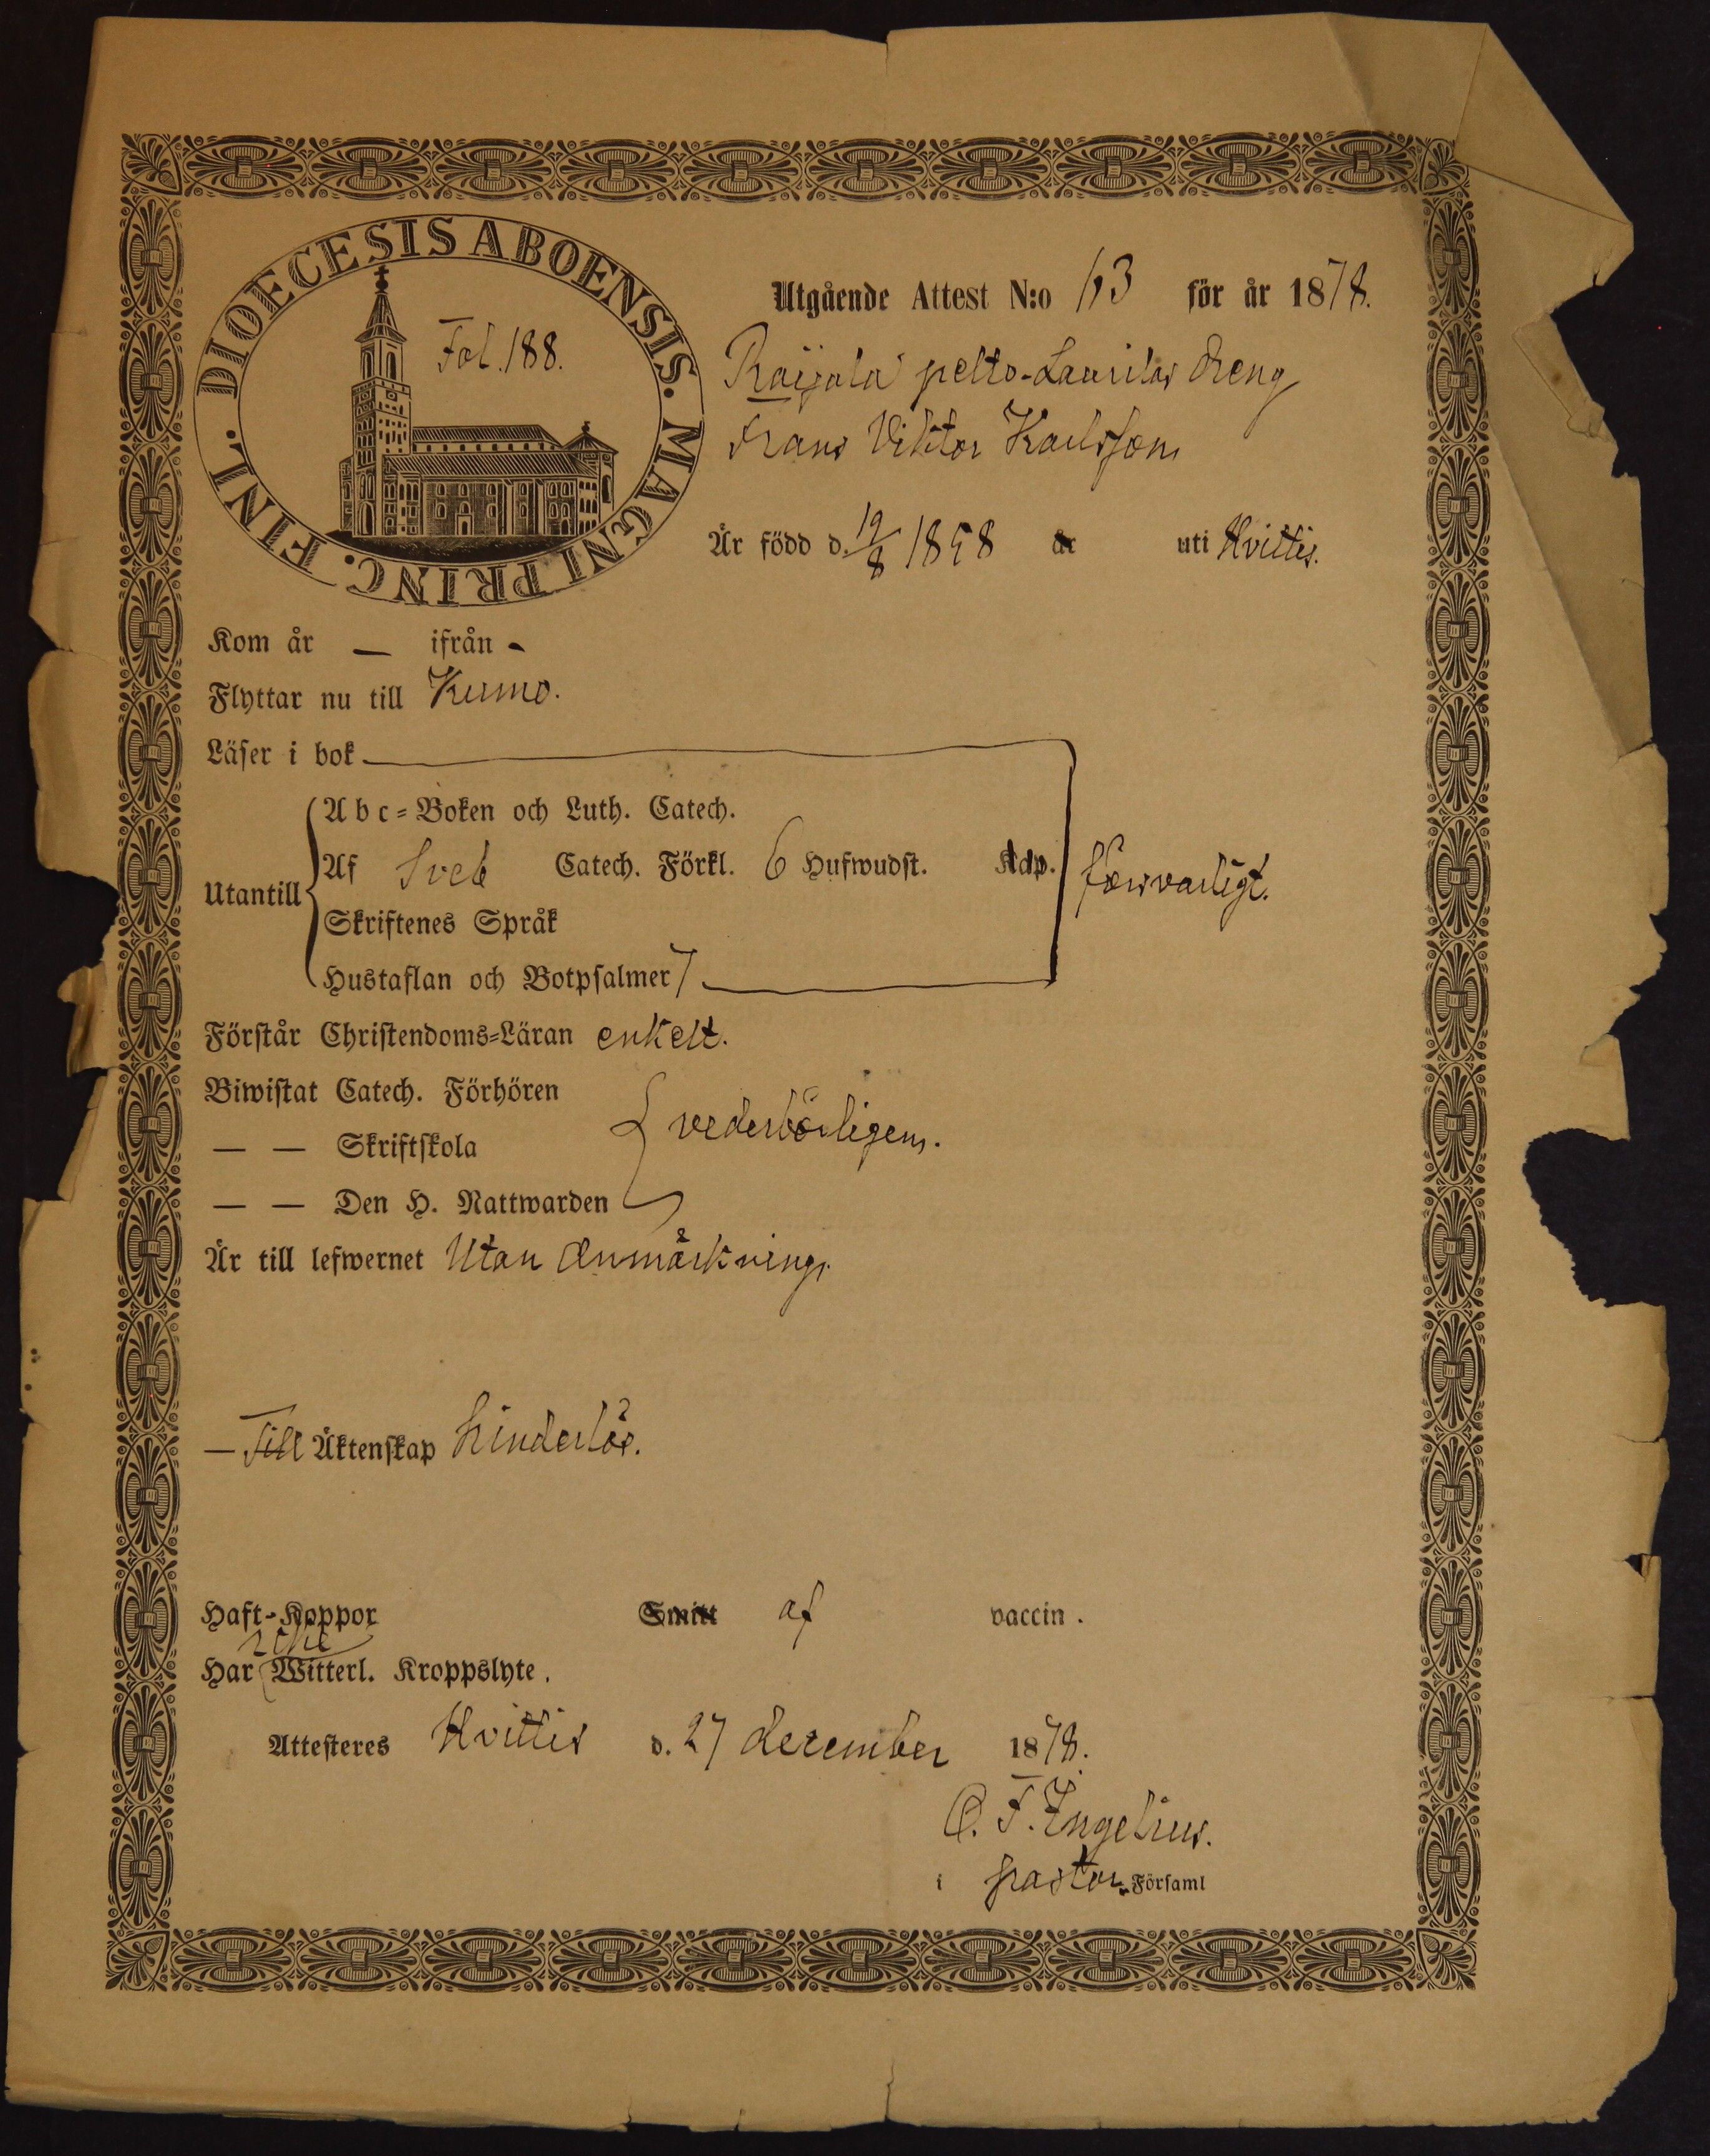 DIOECESIS ABOENSIS. MAGNI PRINC. FINL.
Fol. 188.
Utgående Attest N:o 63 för år 1878.
Raijala pelto-Laurilas dreng
Frans Viktor Karlsson
Är född d. 19/8 1858 år uti Hvittis.
Kom år — ifrån -
Flyttar nu till Kumo.
Läser i bok
Utantill
A b c-Boken och Luth. Catech.
Af Sveb Catech. Förkl. 6 Hufwudst. Kap.
Skriftenes Språk
Hustaflan och Botpsalmer 7
försvarligt.
Förstår Christendoms-Läran enkelt.
Biwistat Catech. Förhören
— — Skriftskola
— — Den H. Nattwarden
vederbörligen.
Är till lefwernet Utan Anmärkning.
— Till Äktenskap hinderlös.
Haft Koppor Smitt af vaccin.
Har icke Witterl. Kroppslyte.
Attesteres Hvittis d. 27 december 1878.
C. F. Ingelius.
i pastor Församl